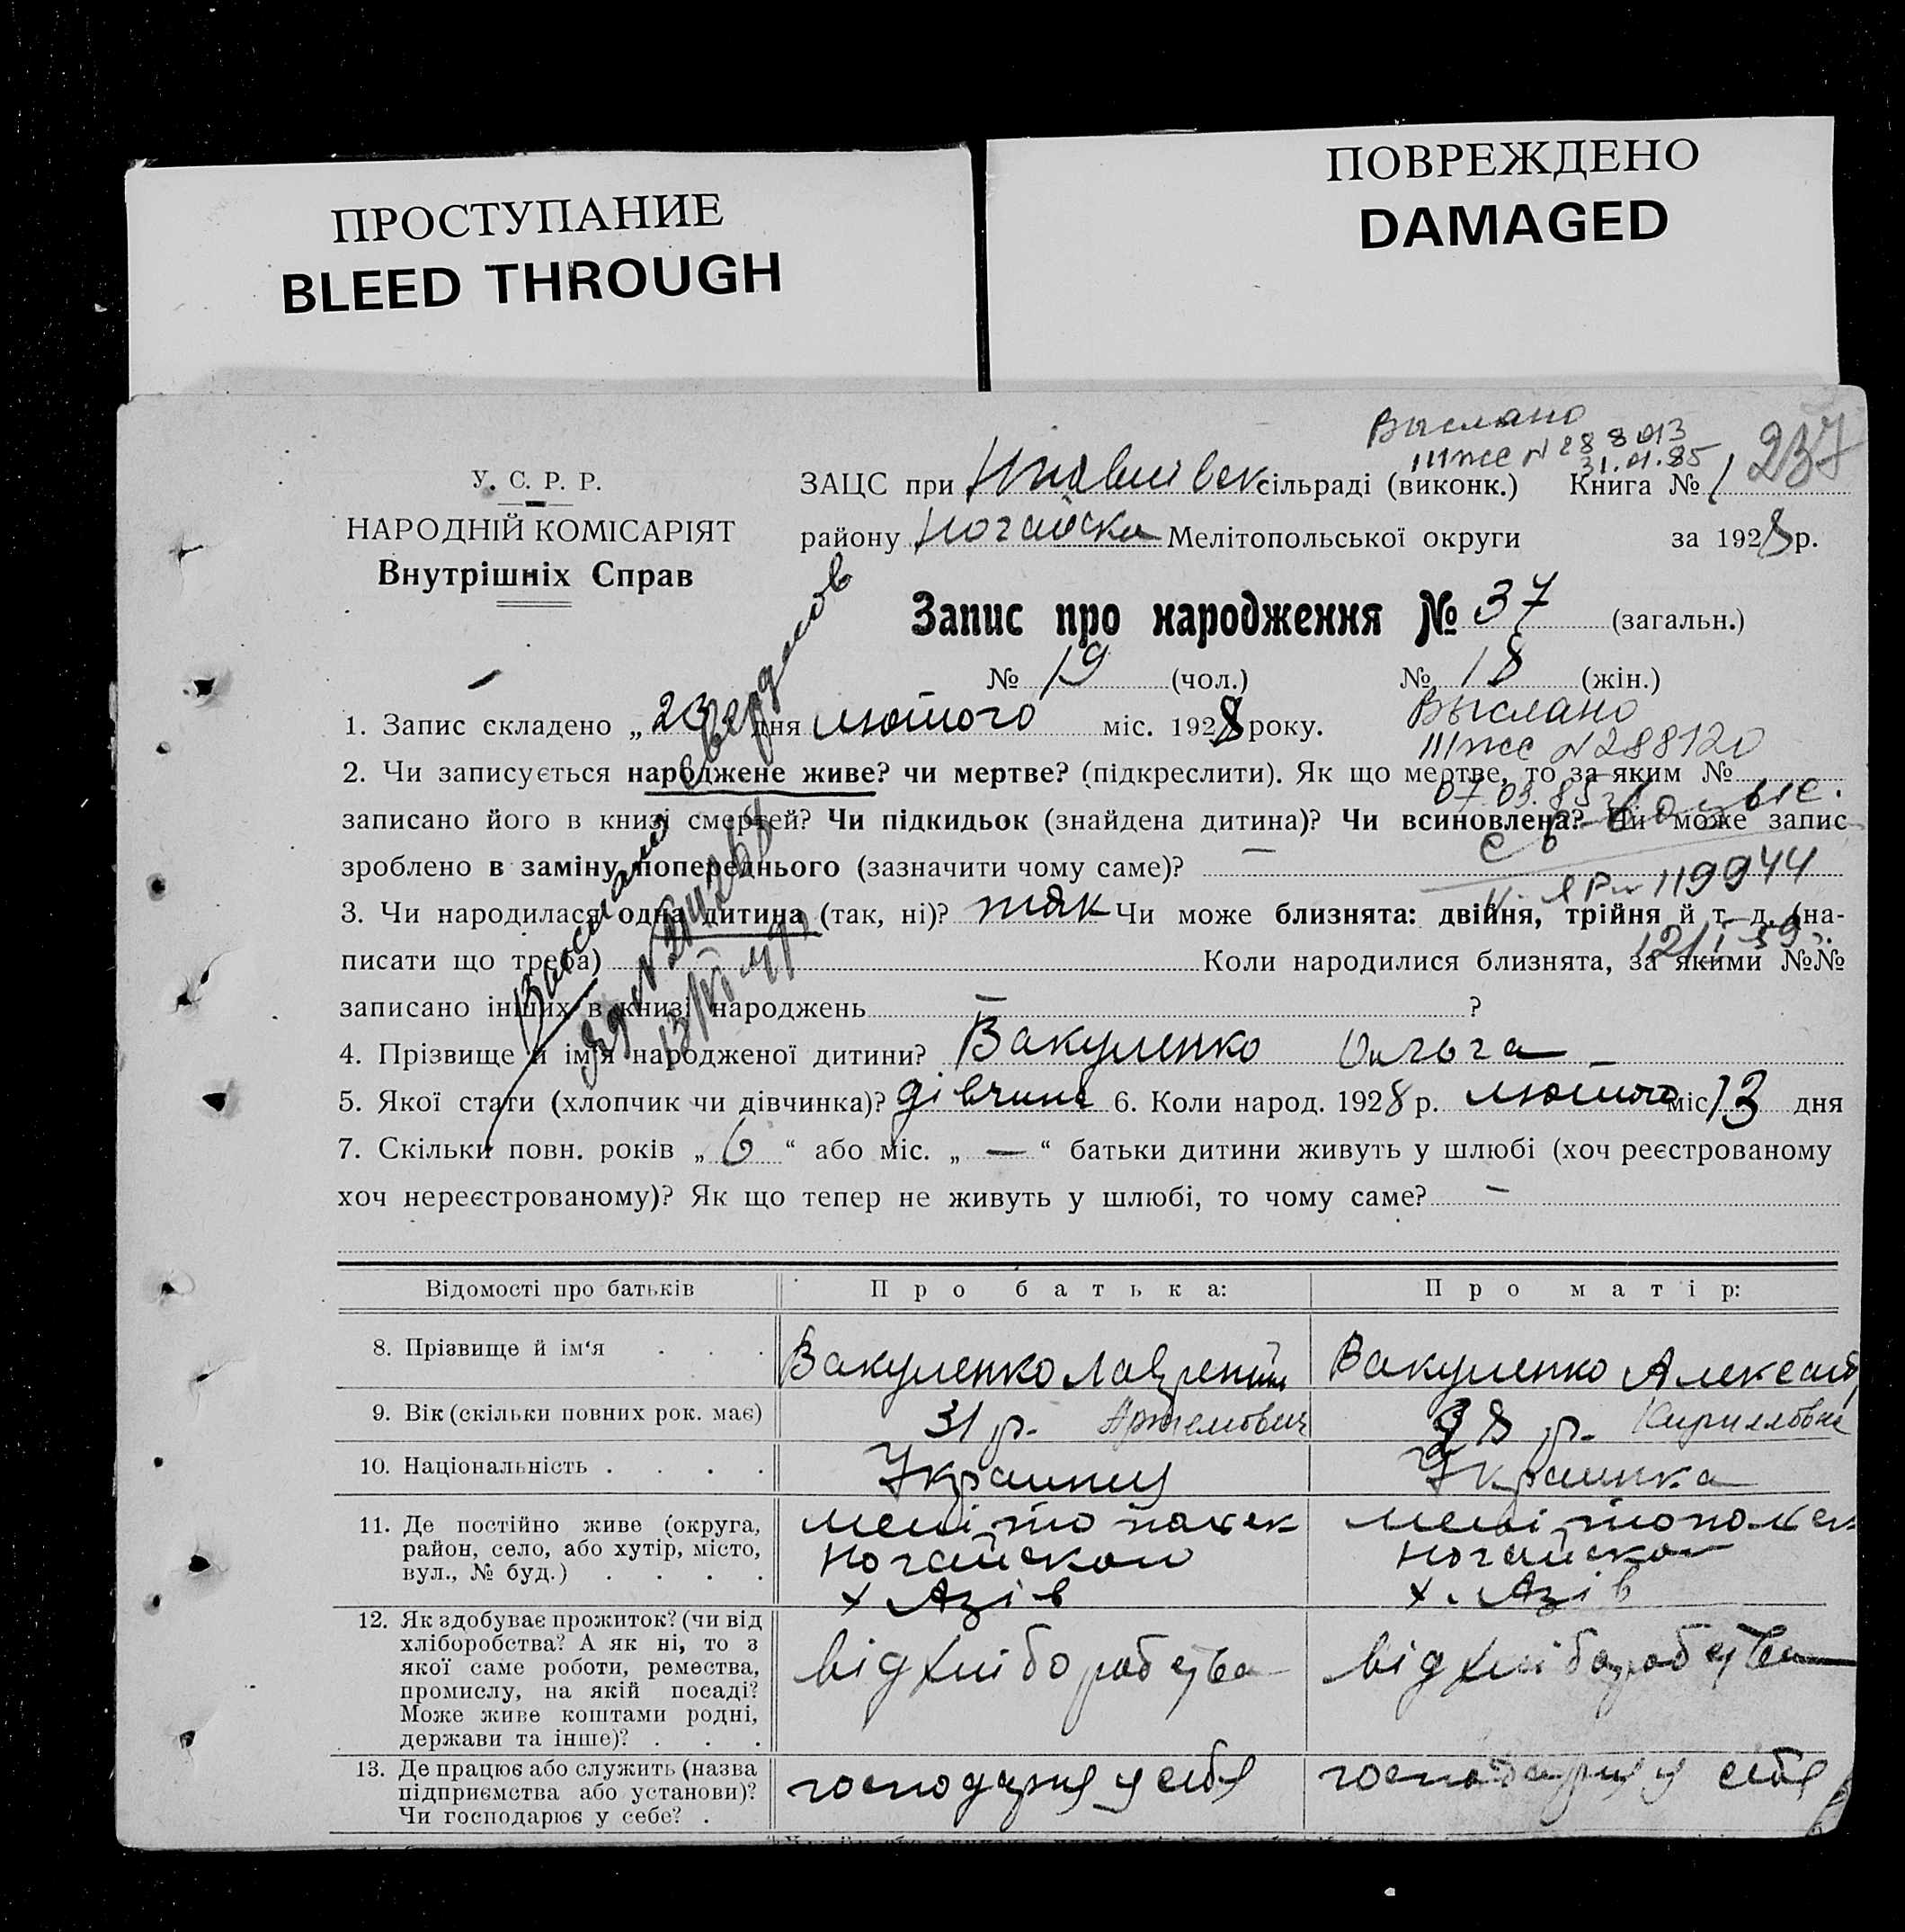 ПРОСТУПАНИЕ
BLEED THROUGH
ПОВРЕЖДЕНО
DAMAGED
Выслано
III ЖС N 288013
31.01.85
237
У. С. Р. Р.
НАРОДНІЙ КОМІСАРІЯТ
Внутрішніх Справ
ЗАЦС при сільраді (виконк.) Книга № 1
району Ногайска Мелітопольської округи за 1928 р.
Запис про народження № 37 (загальн.)
№ 19 (чол.) № 18 (жін.)
1. Запис складено „ 23 дня лютого міс. 1928 року.
Выслано
III ЖС N 288120
07.03.85
2. Чи записується народжене живе? чи мертве? (підкреслити). Як що мертве, то за яким №
записано його в книзі смертей? Чи підкидьок (знайдена дитина)? Чи всиновлена? Чи може запис
зроблено в заміну попереднього (зазначити чому саме)? —
119944
3. Чи народилася одна дитина (так, ні)? так Чи може близнята: двійня, трійня й т. д. (на-
12/I-59
писати що треба) Коли народилися близнята, за якими №№
записано інших в книзі народжень — ?
Выслано
4. Прізвище й ім'я народженої дитини? Вакуленко Ольга
5. Якої стати (хлопчик чи дівчинка)? дівчина 6. Коли народ. 1928 р. лютого міс 13 дня
7. Скільки повн. років „ 6 “ або міс. „ — “ батьки дитини живуть у шлюбі (хоч реєстрованому
хоч нереєстрованому)? Як що тепер не живуть у шлюбі, то чому саме? —
Відомості про батьків Про батька: Про матір:
8. Прізвище й ім‘я Вакуленко Лаврентій Вакуленко Александ
9. Вік (скільки повних рок. має) 31 р. Артемович 38 р. Кирилловна
10. Національність Украинец Украинка
11. Де постійно живе (округа,
район, село, або хутір, місто,
вул., № буд.)
Мелітопольск
Ногайском
х Азів
Мелітопольск
Ногайском
х. Азів
12. Як здобуває прожиток? (чи від
хліборобства? А як ні, то з
якої саме роботи, ремества,
промислу, на якій посаді?
Може живе коштами родні,
держави та інше)?
від хліборобства
від хліборобства
13. Де працює або служить (назва
підприємства або установи)?
Чи господарює у себе?
господарня у себя
господарня у себя